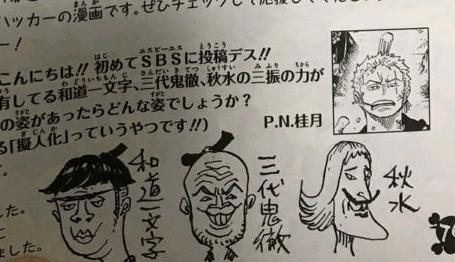 ハッカーの漫画です。ぜひチェックして応援して
ー！
こんにちは!! 初めてSBSに投稿デス!!
有してる和道一文字、三代鬼徹、秋水の三振の刀が
の姿があったらどんな姿でしょうか？
る「擬人化」っていうやつです!!)
P.N.桂月
和道一文字
三代鬼徹
秋水
した。
に
ました。